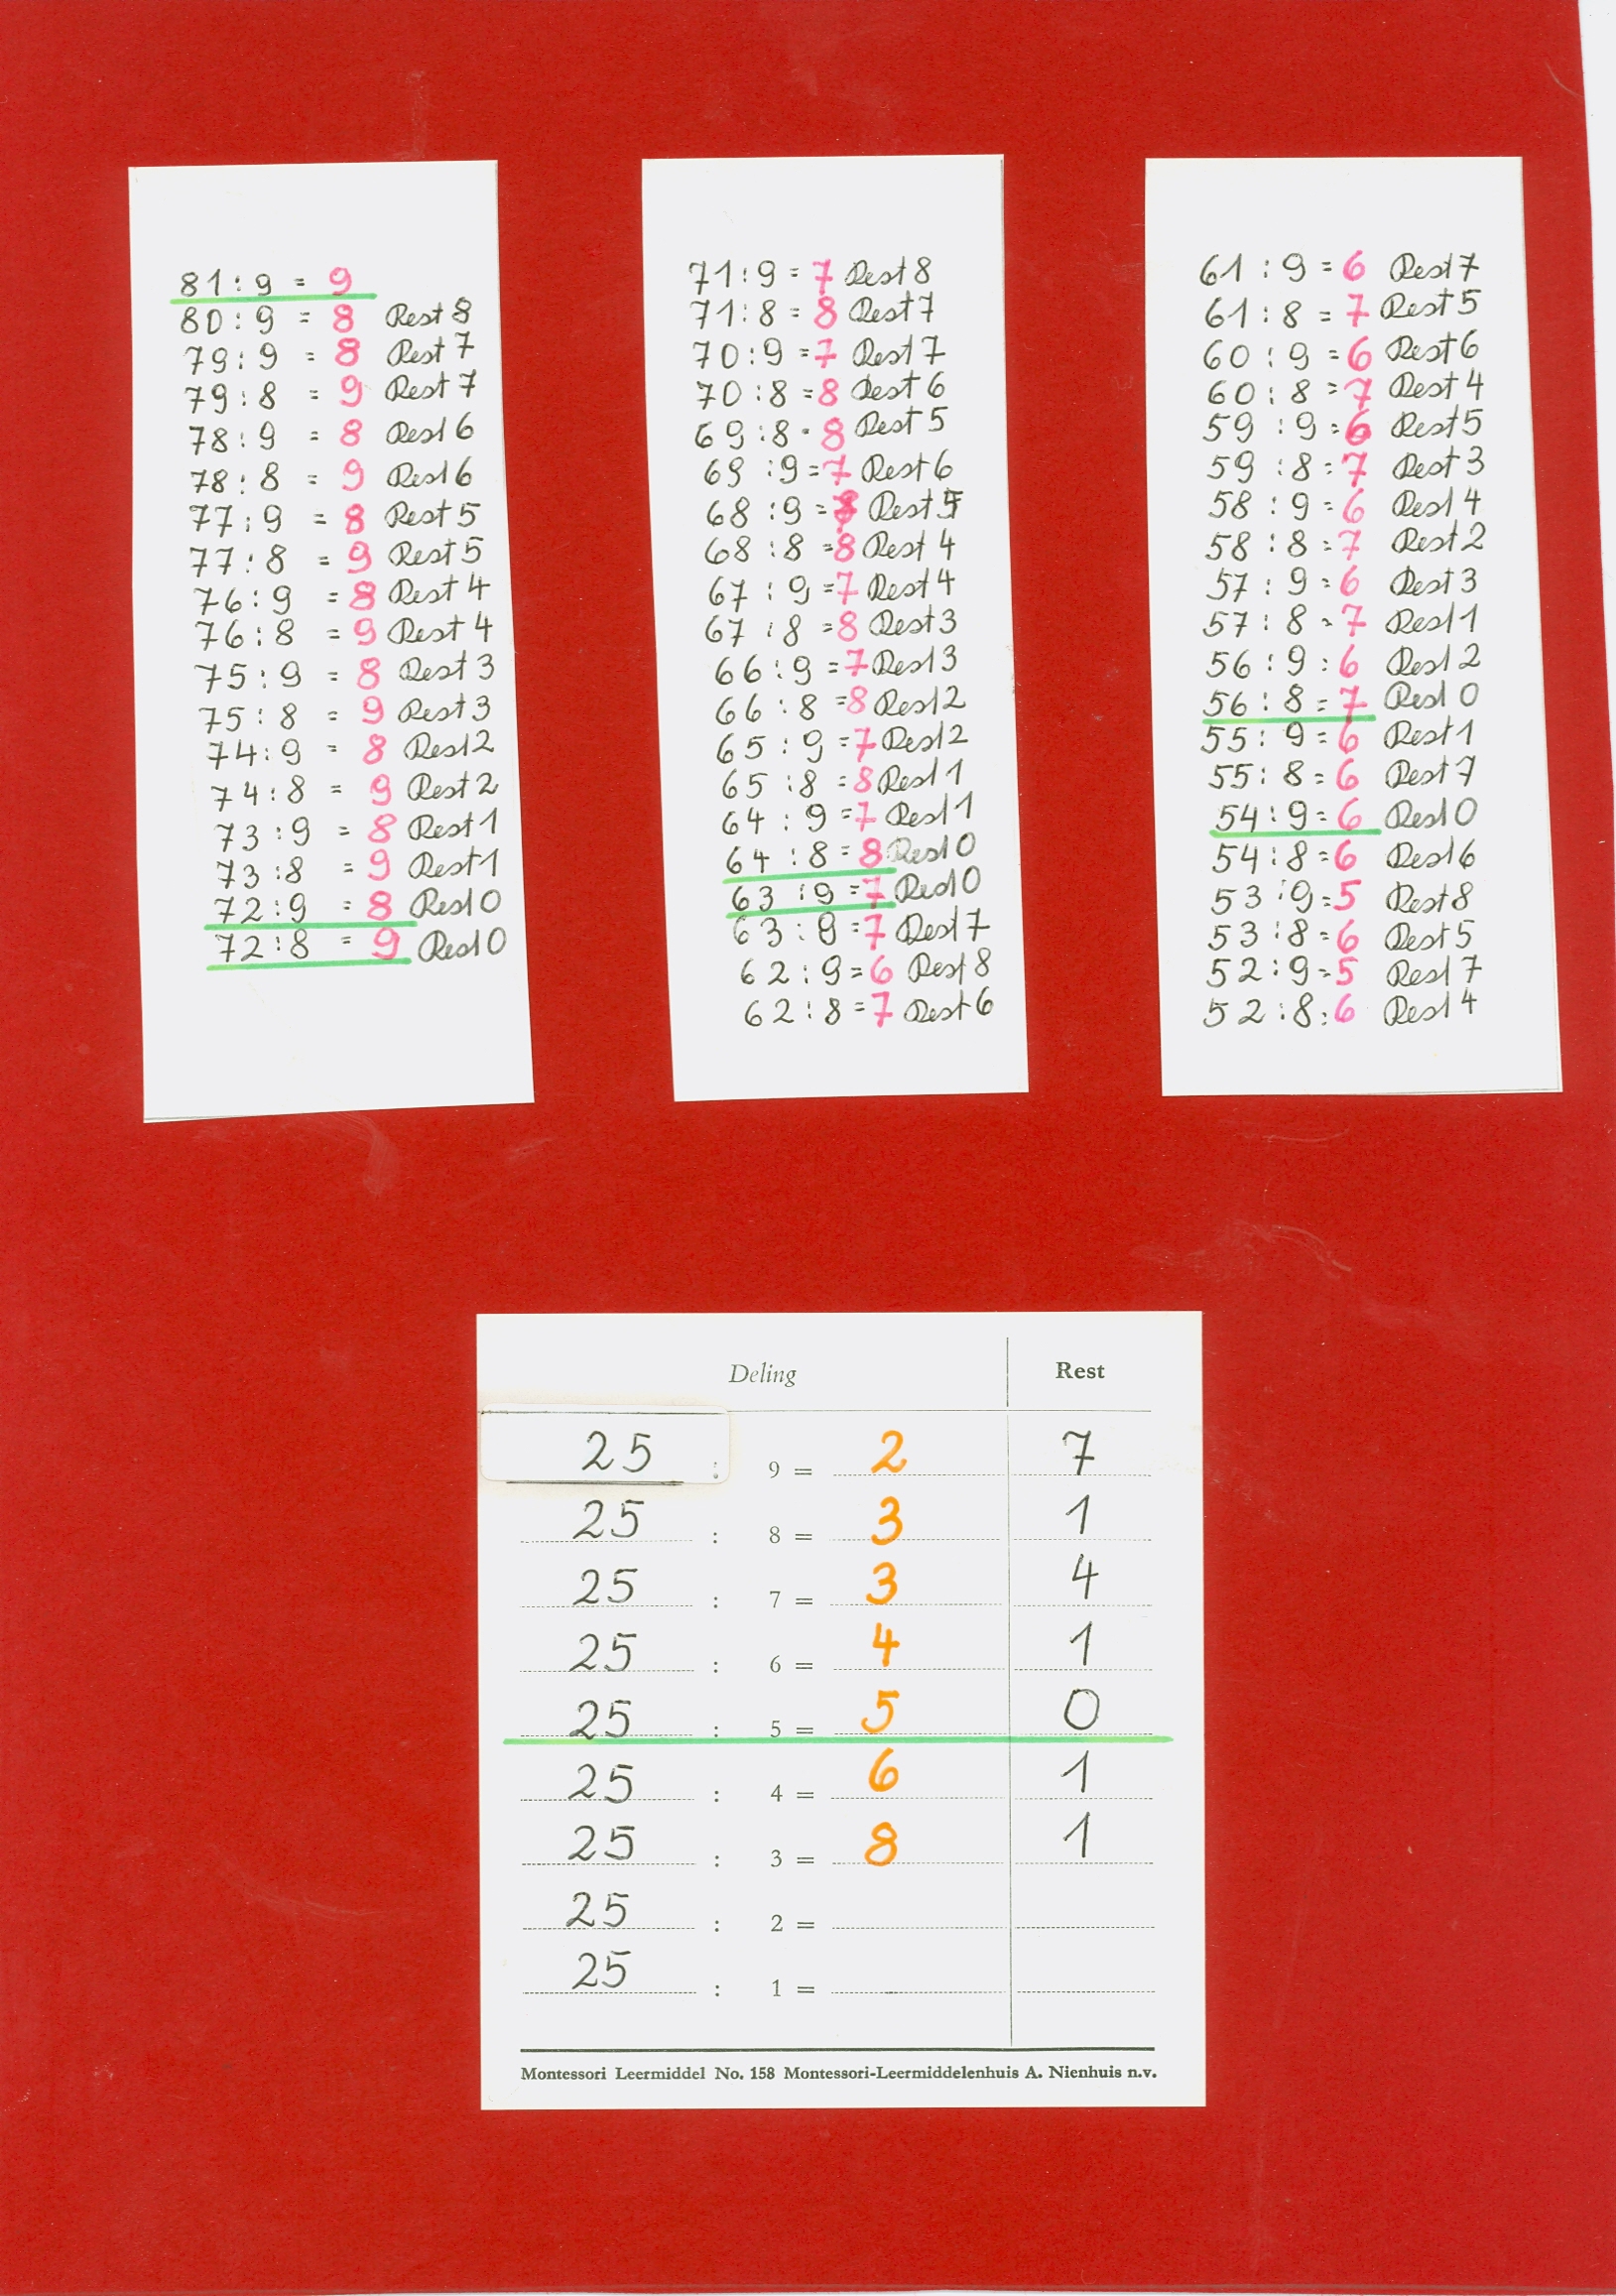 81:9 = 9
80:9 = 8 Rest 8
79:9 = 8 Rest 7
79:8 = 9 Rest 7
78:9 = 8 Rest 6
78:8 = 9 Rest 6
77:9 = 8 Rest 5
77:8 = 9 Rest 5
76:9 = 8 Rest 4
76:8 = 9 Rest 4
75:9 = 8 Rest 3
75:8 = 9 Rest 3
74:9 = 8 Rest 2
74:8 = 9 Rest 2
73:9 = 8 Rest 1
73:8 = 9 Rest 1
72:9 = 8 Rest 0
72:8 = 9 Rest 0
71:9 = 7 Rest 8
71:8 = 8 Rest 7
70:9 = 7 Rest 7
70:8 = 8 Rest 6
69:8 = 8 Rest 5
69:9 = 7 Rest 6
68:9 = Rest 5
68:8 = 8 Rest 4
67:9 = 7 Rest 4
67:8 = 8 Rest 3
66:9 = 7 Rest 3
66:8 = 8 Rest 2
65:9 = 7 Rest 2
65:8 = 8 Rest 1
64:9 = 7 Rest 1
64:8 = 8 Rest 0
63:9 = 7 Rest 0
63:8 = 7 Rest 7
62:9 = 6 Rest 8
62:8 = 7 Rest 6
61:9 = 6 Rest 7
61:8 = 7 Rest 5
60:9 = 6 Rest 6
60:8 = 7 Rest 4
59:9 = 6 Rest 5
59:8 = 7 Rest 3
58:9 = 6 Rest 4
58:8 = 7 Rest 2
57:9 = 6 Rest 3
57:8 = 7 Rest 1
56:9 = 6 Rest 2
56:8 = 7 Rest 0
55:9 = 6 Rest 1
55:8 = 6 Rest 7
54:9 = 6 Rest 0
54:8 = 6 Rest 6
53:9 = 5 Rest 8
53:8 = 6 Rest 5
52:9 = 5 Rest 7
52:8 = 6 Rest 4
Deling Rest
25 : 9 = 2 7
25 : 8 = 3 1
25 : 7 = 3 4
25 : 6 = 4 1
25 : 5 = 5 0
25 : 4 = 6 1
25 : 3 = 8 1
25 : 2 =
25 : 1 =
Montessori Leermiddel No. 158 Montessori-Leermiddelenhuis A. Nienhuis n.v.